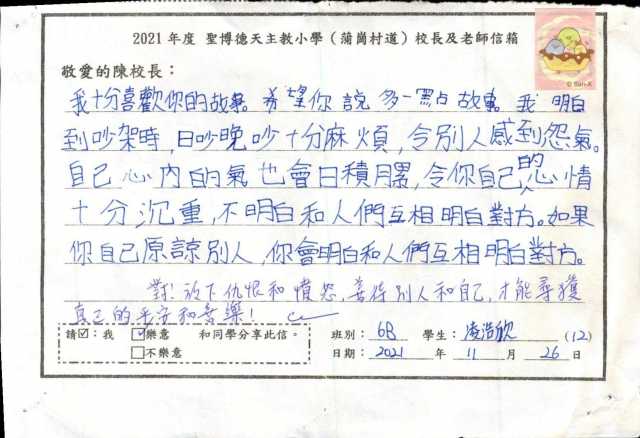 2021 年度 聖博德天主教小學（蒲崗村道）校長及老師信箱
© San-X
敬愛的陳校長：
我十分喜歡你的故事。希望你說多一點故事。我明白
到吵架時，日吵晚吵十分麻煩，令別人感到怨氣。
自己心內的氣也會日積月累，令你自己的心情
十分沉重，不明白和人們互相明白對方。如果
你自己原諒別人，你會明白和人們互相明白對方。
對！放下仇恨和憤怒，善待別人和自己，才能尋獲
真正的平安和喜樂！
請☑：我 ☑樂意 和同學分享此信。
□不樂意
班別：6B 學生：凌浩欣 (12)
日期：2021 年 11 月 26 日